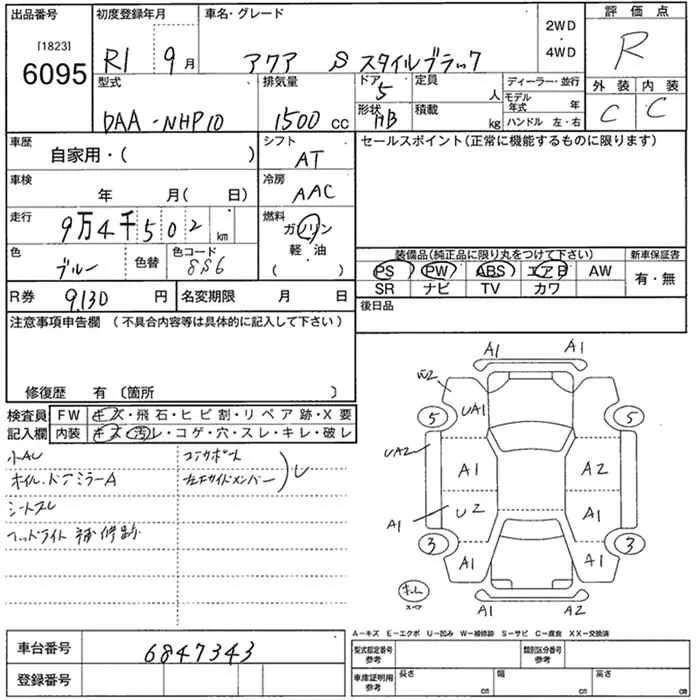 出品番号
[1823]
6095
初度登録年月
R1 9月
車名・グレード
アクア S スタイルブラック
2WD
・
4WD
評価点
R
型式
DAA-NHP10
排気量
1500 CC
ドア
5
形状
HB
定員
人
積載
kg
ディーラー・並行
モデル年式 年
ハンドル 左・右
外装 内装
C C
車歴
自家用・( )
シフト
AT
セールスポイント(正常に機能するものに限ります)
車検
年 月( 日)
冷房
AAC
走行
9万4千502 km
燃料
ガソリン
軽・油
( ・ )
色
ブルー
色替
色コード
8S6
装備品(純正品に限り丸をつけて下さい)
新車保証書
PS PW ABS エアB AW
SR ナビ TV カワ
有・無
R券 9,130 円
名変期限 月 日
後日品
注意事項申告欄 (不具合内容等は具体的に記入して下さい)
修復歴 有 〔箇所 〕
検査員
記入欄
FW キズ・飛石・ヒビ割・リペア跡・X要
内装 キズ・汚レ・コゲ・穴・スレ・キレ・破レ
小AU
コアサポート
ホイル、ドアミラーA
左右サイドメンバー
シートスレ
ヘッドライト 補修跡
A1 A1
W2
UA1
5 5
UA2
A1 A2
U2 A1
A1
3 3
A1 A1
A1 A2
A-キズ E-エクボ U-凹み W-補修跡 S-サビ C-腐食 XX-交換済
車台番号 6847343
登録番号
型式指定番号
参考
類別区分番号
参考
車庫証明用
参考
長さ cm
幅 cm
高さ cm